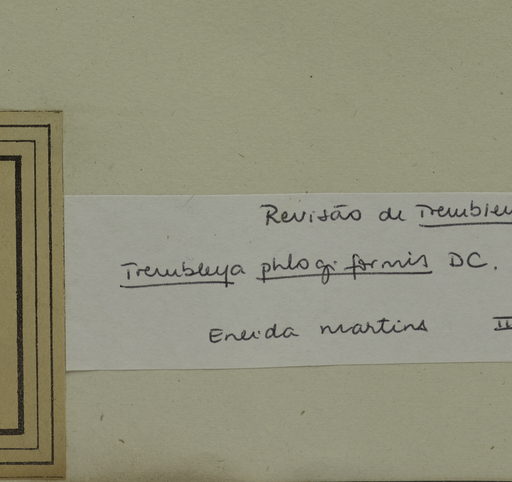 Revisão de Trembley
Trembleya phlogiformis DC.
Eneida Martins II